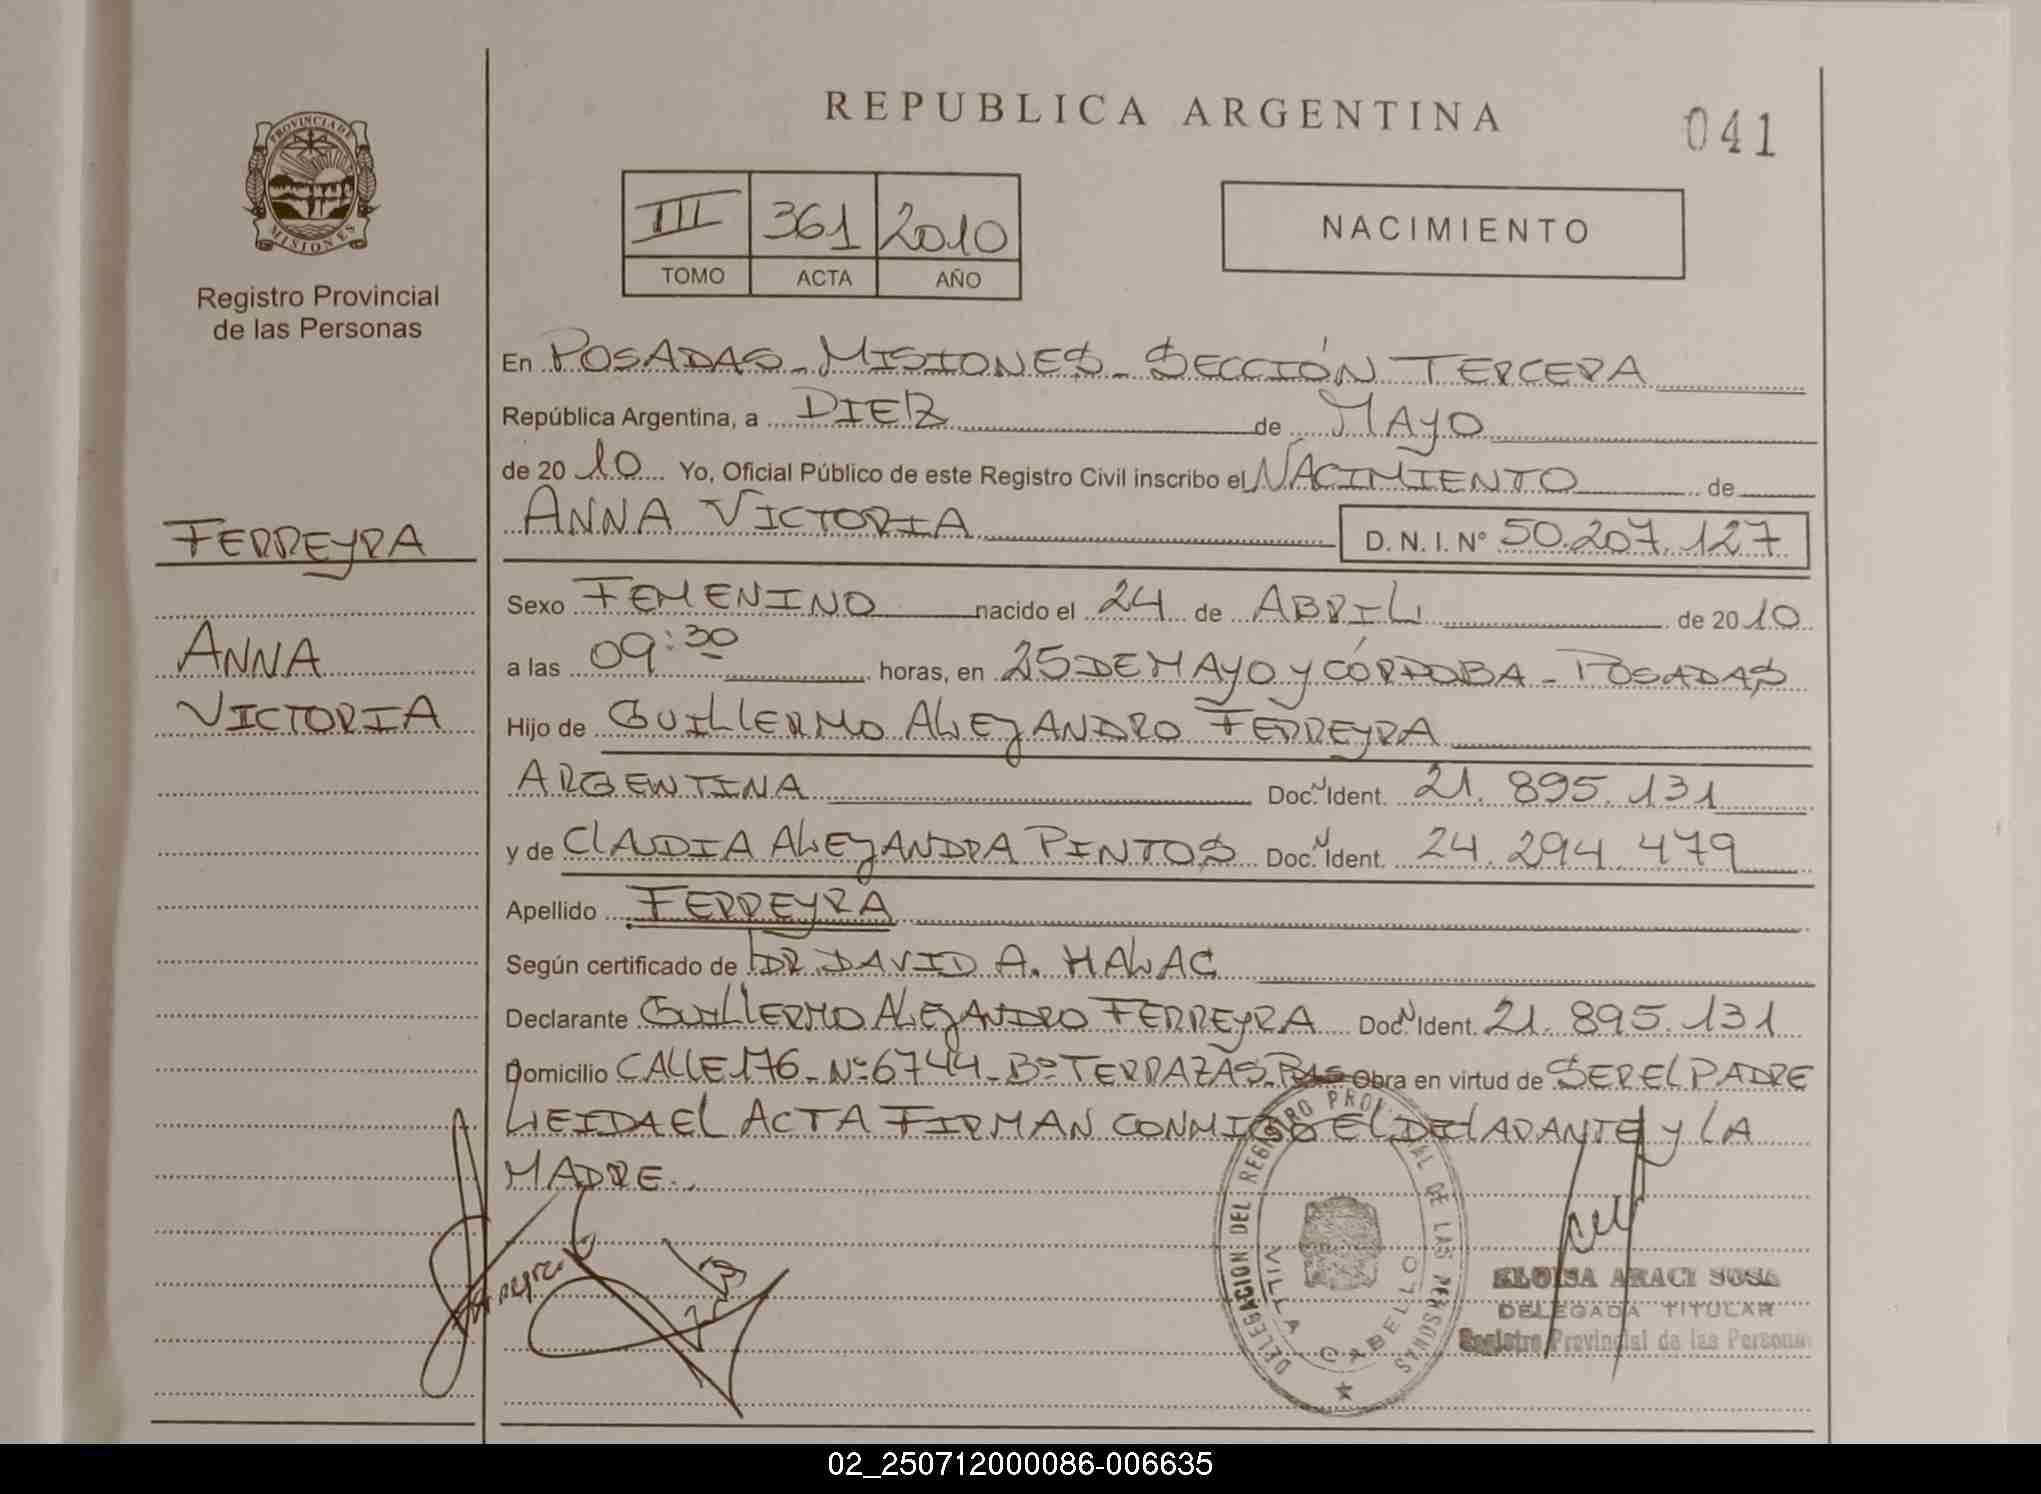 REPUBLICA ARGENTINA
041
PROVINCIA DE
MISIONES
Registro Provincial
de las Personas
III 361 2010
TOMO ACTA AÑO
NACIMIENTO
En POSADAS - MISIONES - SECCIÓN TERCERA
República Argentina, a DIEZ de MAYO
de 20 10 Yo, Oficial Público de este Registro Civil inscribo el NACIMIENTO de
ANNA VICTORIA D. N. I. Nº 50.207.127
FERREYRA
ANNA
VICTORIA
Sexo FEMENINO nacido el 24 de ABRIL de 20 10
a las 09:30 horas, en 25 DE MAYO Y CÓRDOBA - POSADAS
Hijo de GUILLERMO ALEJANDRO FERREYRA
ARGENTINA Doc. Ident. 21.895.131
y de CLAUDIA ALEJANDRA PINTOS Doc. Ident. 24.294.479
Apellido FERREYRA
Según certificado de DR DAVID A. HALAC
Declarante GUILLERMO ALEJANDRO FERREYRA Doc. Ident. 21.895.131
Domicilio CALLE 176 - Nº 6744 - Bº TERRAZAS - Obra en virtud de SER EL PADRE
LEIDA EL ACTA FIRMAN CONMIGO EL DECLARANTE Y LA
MADRE.
DELEGACION DEL REGISTRO PROVINCIAL DE LAS PERSONAS
VILLA CABELLO
ELOISA ARACI SOSA
DELEGADA TITULAR
Registro Provincial de las Personas
02_250712000086-006635